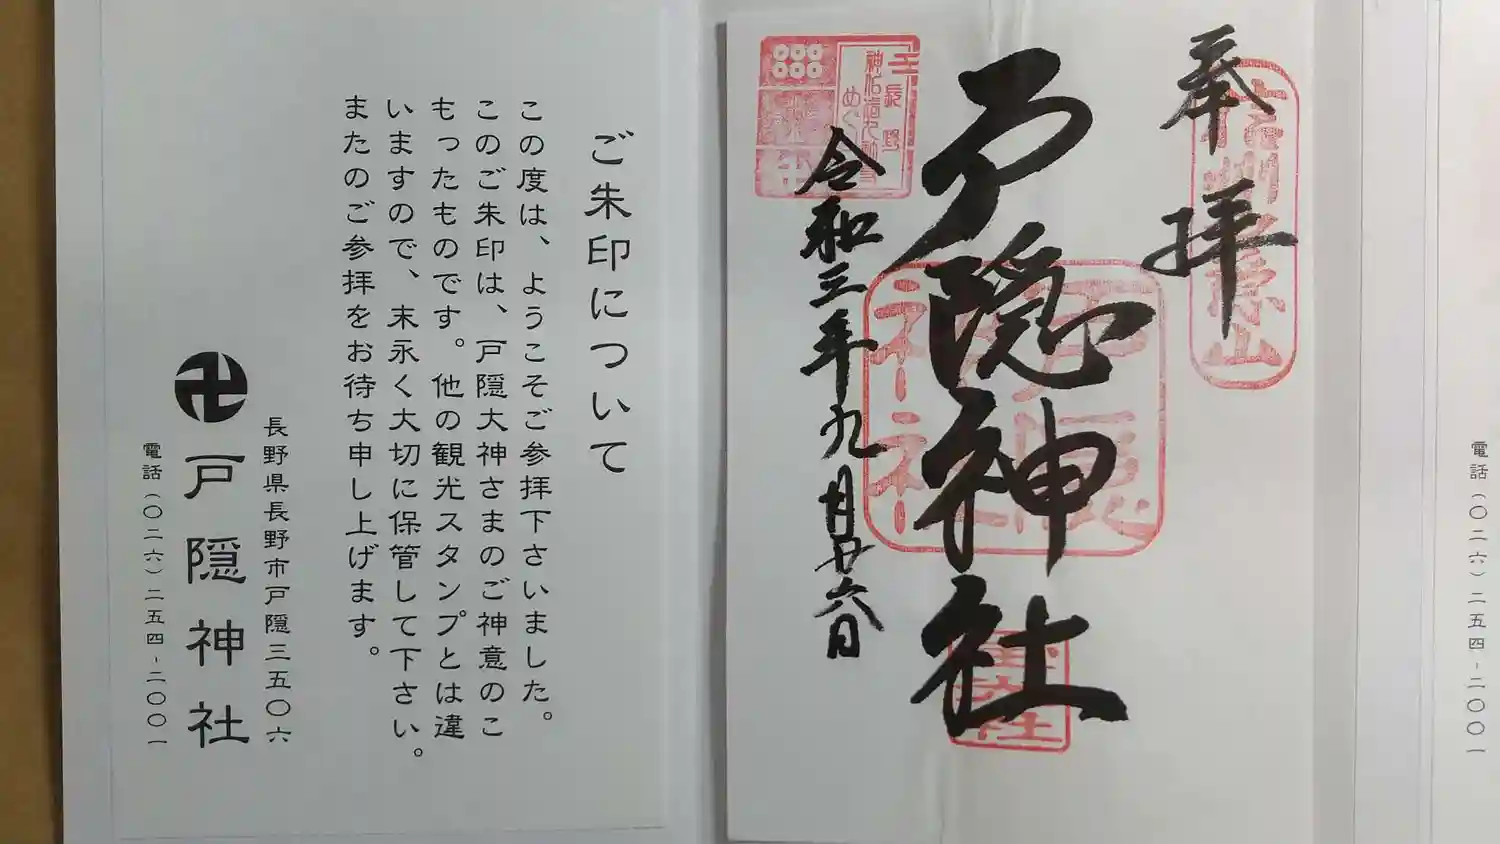 ご朱印について
この度は、ようこそご参拝下さいました。
このご朱印は、戸隠大神さまのご神意のこ
もったものです。他の観光スタンプとは違
いますので、末永く大切に保管して下さい。
またのご参拝をお待ち申し上げます。
長野県長野市戸隠三五〇六
戸隠神社
電話（〇二六）二五四-二〇〇一
奉拝
戸隠神社
令和三年九月廿六日
長野
めぐ
戸隠
神社
電話（〇二六）二五四-二〇〇一